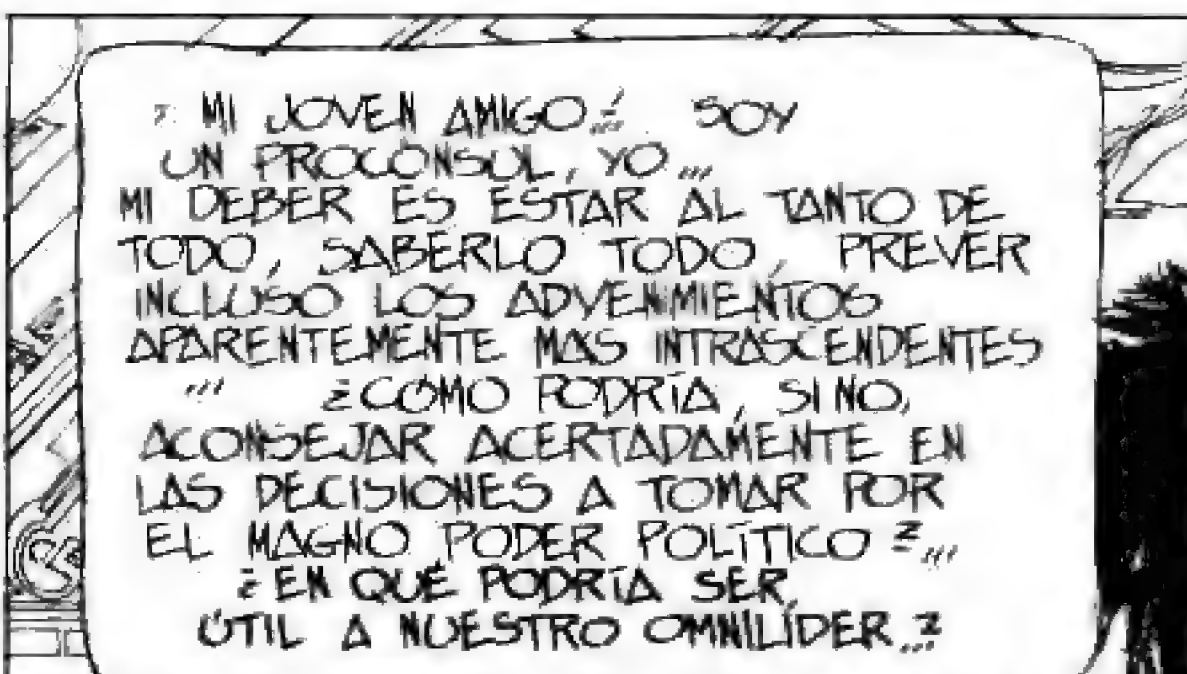 ¡ MI JOVEN AMIGO...! SOY
UN PROCÓNSUL, YO...
MI DEBER ES ESTAR AL TANTO DE
TODO, SABERLO TODO, PREVER
INCLUSO LOS ADVENIMIENTOS
APARENTEMENTE MAS INTRASCENDENTES
... ¿CÓMO PODRÍA, SI NO,
ACONSEJAR ACERTADAMENTE EN
LAS DECISIONES A TOMAR POR
EL MAGNO PODER POLÍTICO ?...
¿EN QUÉ PODRÍA SER,
ÚTIL A NUESTRO OMNILÍDER...?